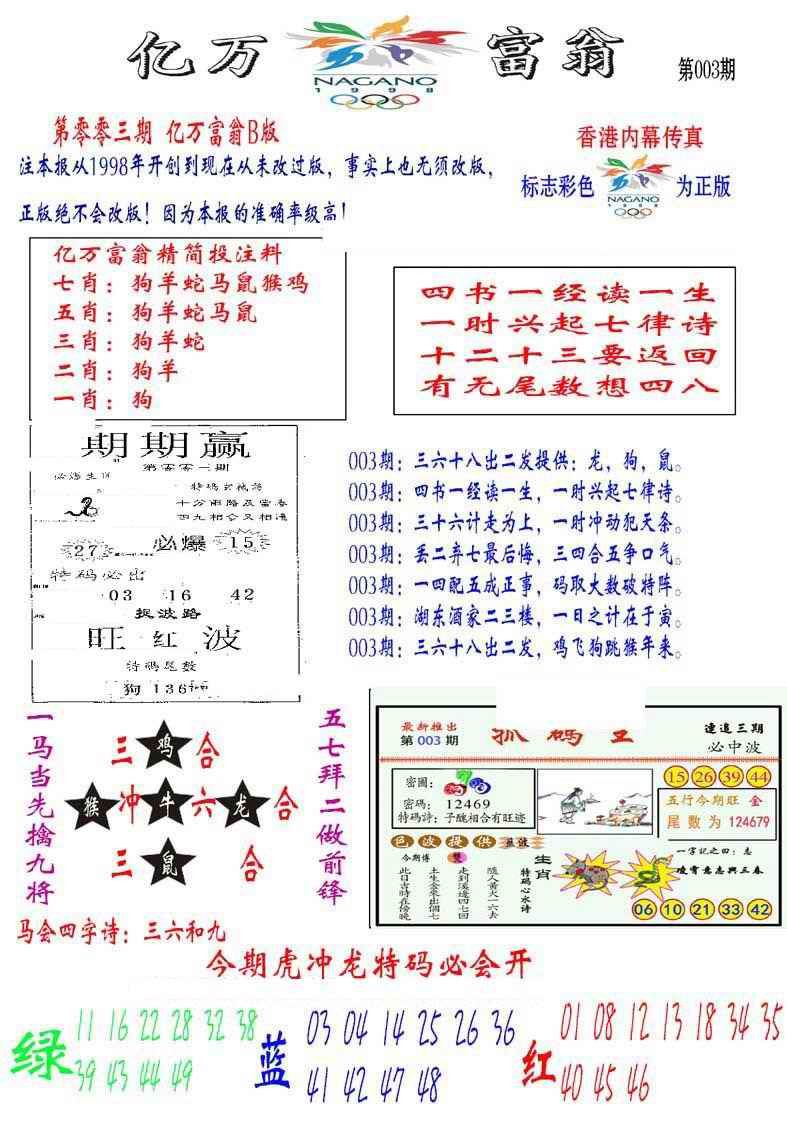 亿万富翁
NAGANO
1998
第003期
第零零三期 亿万富翁B版
香港内幕传真
注本报从1998年开创到现在从未改过版，事实上也无须改版，
标志彩色
NAGANO
1998
为正版
正版绝不会改版！因为本报的准确率级高！
亿万富翁精简投注料
七肖：狗羊蛇马鼠猴鸡
五肖：狗羊蛇马鼠
三肖：狗羊蛇
二肖：狗羊
一肖：狗
四书一经读一生
一时兴起七律诗
十二十三要返回
有无尾数想四八
期期赢
必爆生肖
特码玄机诗
十分雨路及当春
四九相合又相逢
27
必爆
15
特码必出
03 16 42
捉波路
旺红波
特码尾数
狗 136
003期：三六十八出二发提供：龙，狗，鼠。
003期：四书一经读一生，一时兴起七律诗。
003期：三十六计走为上，一时冲动犯天条。
003期：丢二弃七最后悔，三四合五争口气。
003期：一四配五成正事，码取大数破特阵。
003期：湖东酒家二三楼，一日之计在于寅。
003期：三六十八出二发，鸡飞狗跳猴年来。
一马当先擒九将
三鸡合
猴冲牛六龙合
三鼠合
五七拜二做前锋
马会四字诗：三六和九
最新推出
第003期
抓码王
连追三期
必中波
密图：
密码： 12469
特码诗：子醜相合有旺迹
15 26 39 44
五行今期旺 金
尾数为 124679
色波提供 蓝波
今期傅 雙
此日吉時在傍晚
土生金來出個七
走到溪邊四七回
隨人黄火一六去
特码心水诗
生肖
一字記之曰：志
凌霄意志興三春
06 10 21 33 42
今期虎冲龙特码必会开
绿
11 16 22 28 32 38
39 43 44 49
蓝
03 04 14 25 26 36
41 42 47 48
红
01 08 12 13 18 34 35
40 45 46